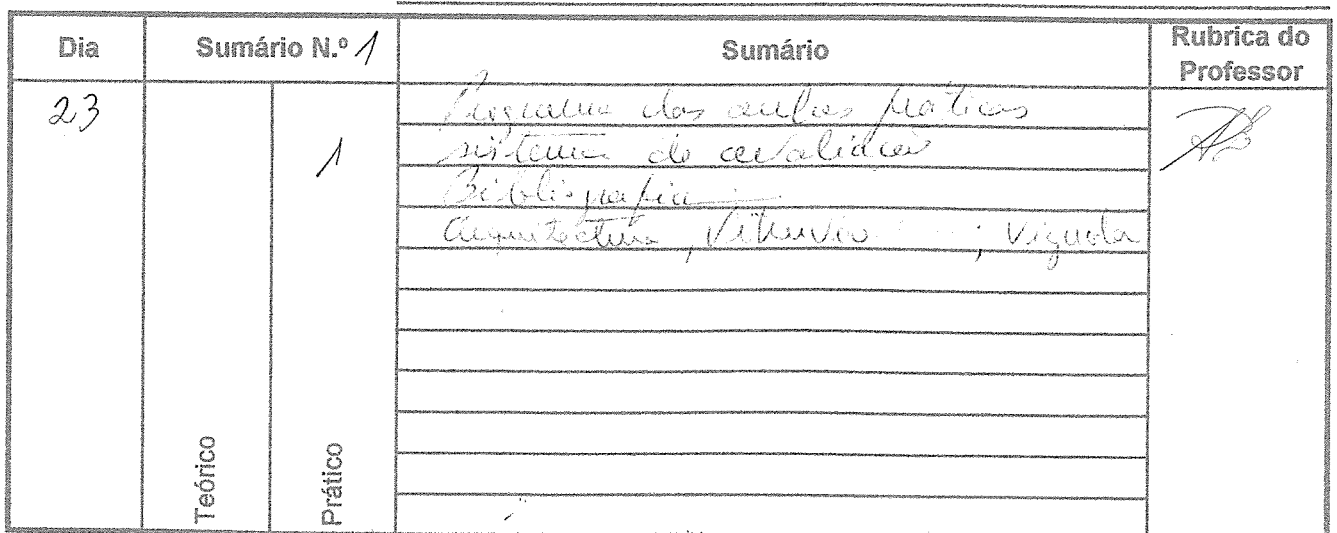 Dia Sumário N.º 1 Sumário Rubrica do Professor
23
1
Programa das aulas práticas
sistema de avaliação
Bibliografia
Arquitectura, Vitruvio ; Vignola
Teórico
Prático